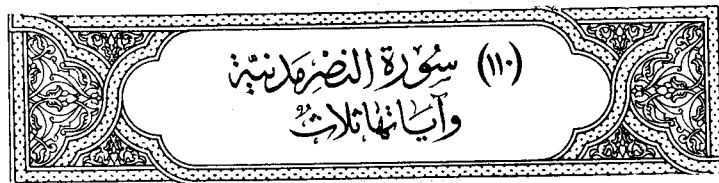 (١١٠) سُورَة النَصْر مَدَنيَّة
وَآيَاتهَا ثَلَاثٌ